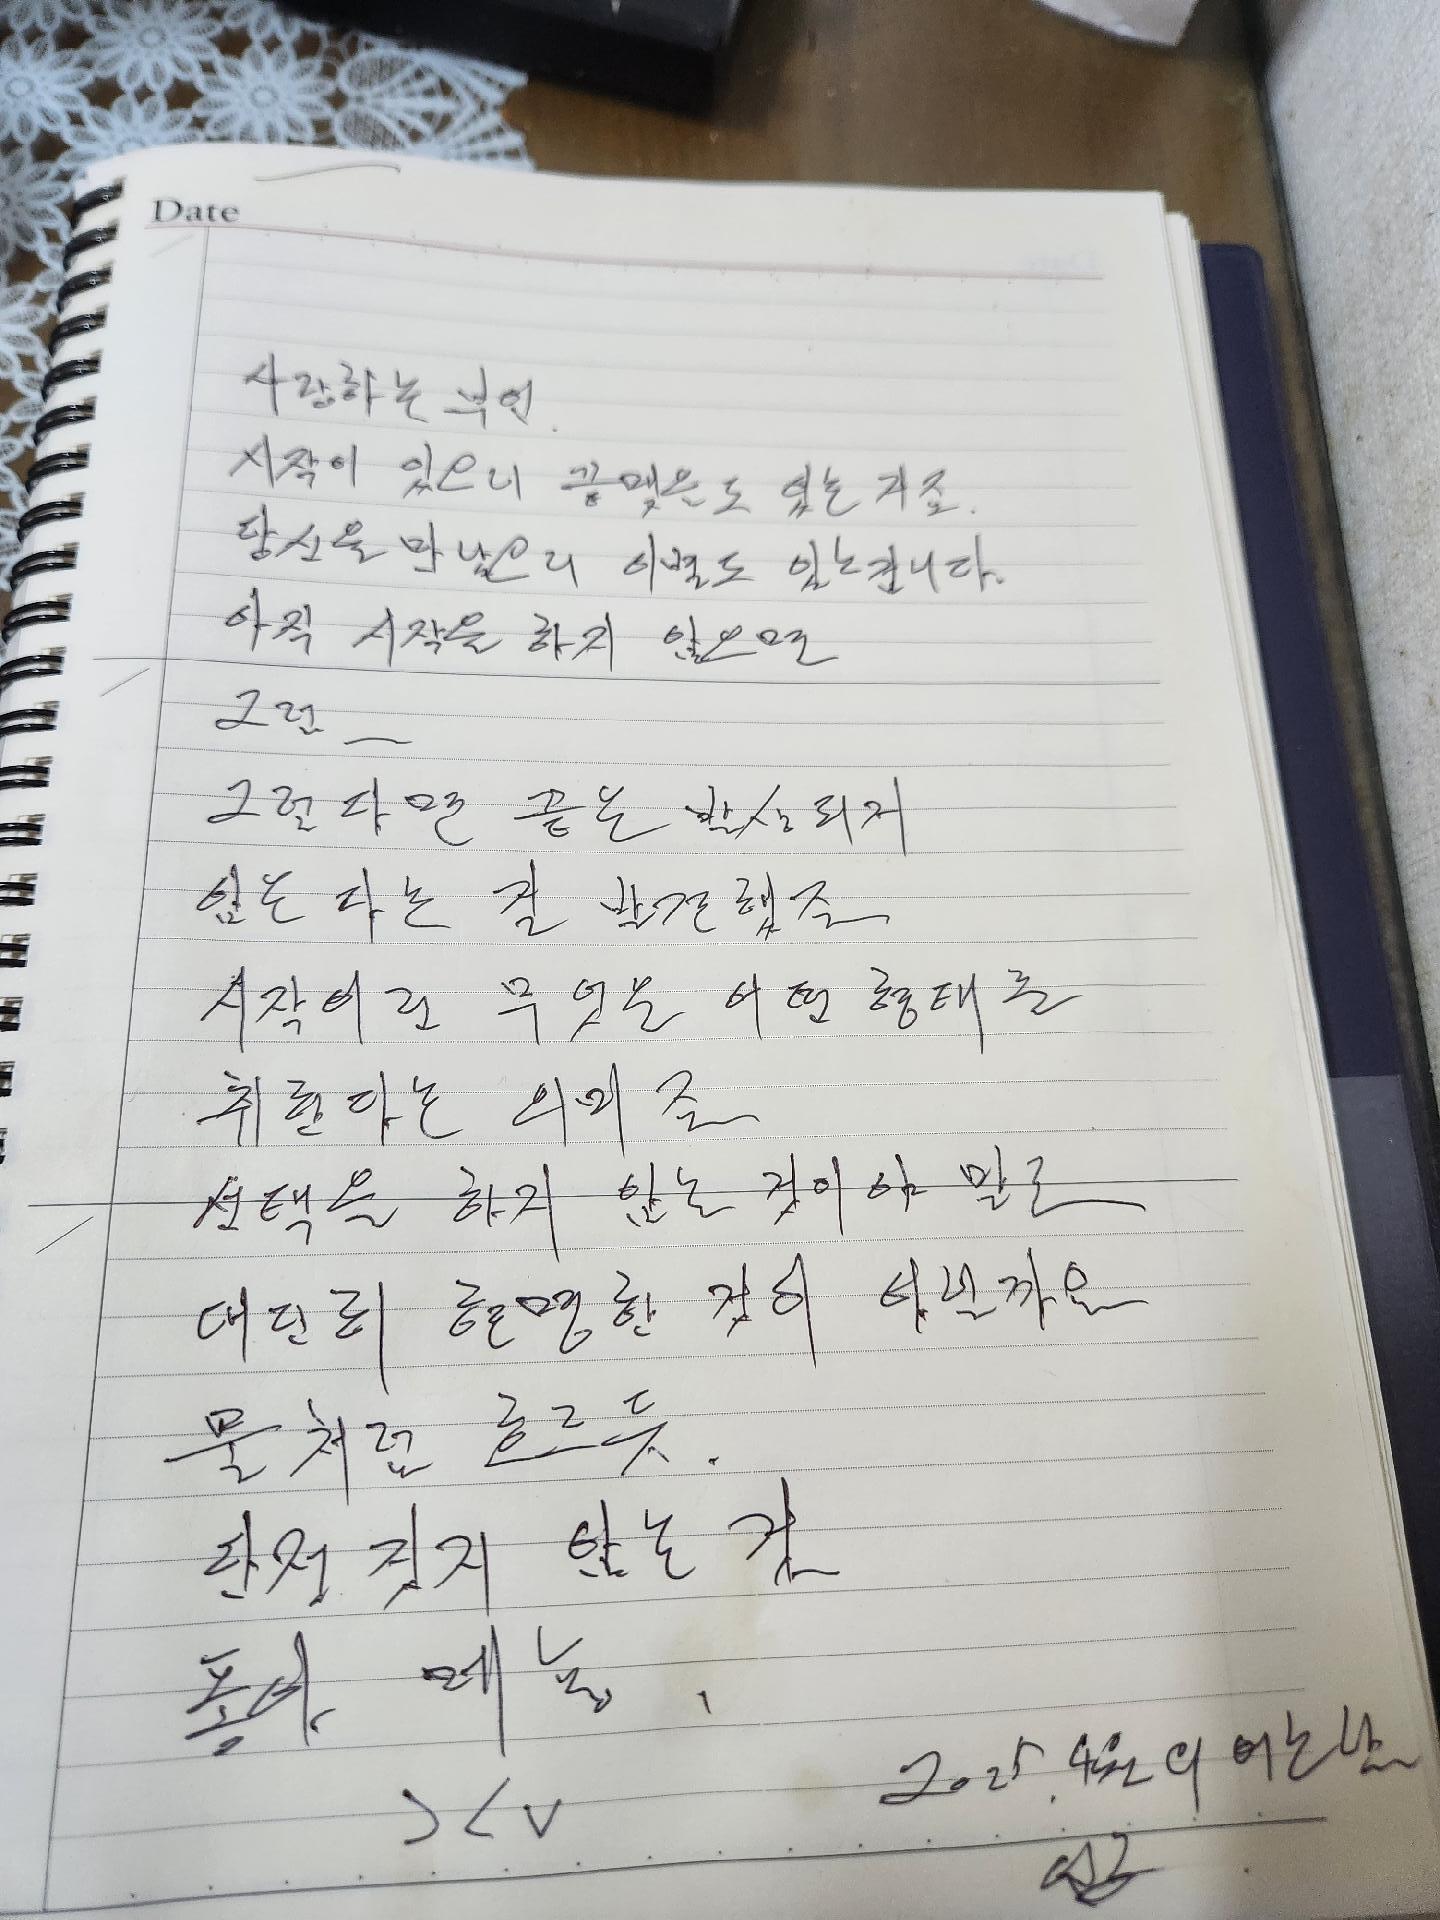 Date
사랑하는 부인.
시작이 있으니 끝맺음도 있는거죠.
당신을 만났으니 이별도 있는겁니다.
아직 시작을 하지 않으면
그럼
그렇다면 끝은 발생되지
않는 다는 걸 발견했죠
시작이란 무엇을 어떤 형태를
취한다는 의미죠
선택을 하지 않는 것이야 말로
대단히 현명한 것이 아닐까요
물처럼 흐르듯.
단정 짓지 않는 것
2025. 4월의 어느날